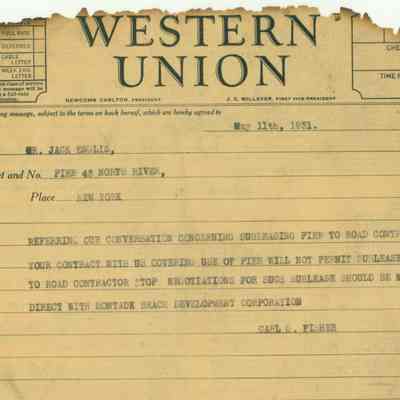 FULL RATE
DEFERRED
CABLE LETTER
WEEK END LETTER
WESTERN
UNION
NEWCOMB CARLTON, PRESIDENT
J. C. WILLEVER, FIRST VICE-PRESIDENT
CHE
TIME F
ng message, subject to the terms on back hereof, which are hereby agreed to
May 11th, 1931.
MR. JACK ENGLIS,
t and No. PIER 43 NORTH RIVER,
Place NEW YORK
REFERRING OUR CONVERSATION CONCERNING SUBLEASING PIER TO ROAD CONTR
YOUR CONTRACT WITH US COVERING USE OF PIER WILL NOT PERMIT SUBLEASE
TO ROAD CONTRACTOR STOP NEGOTIATIONS FOR SUCH SUBLEASE SHOULD BE M
DIRECT WITH MONTAUK BEACH DEVELOPMENT CORPORATION
CARL G. FISHER